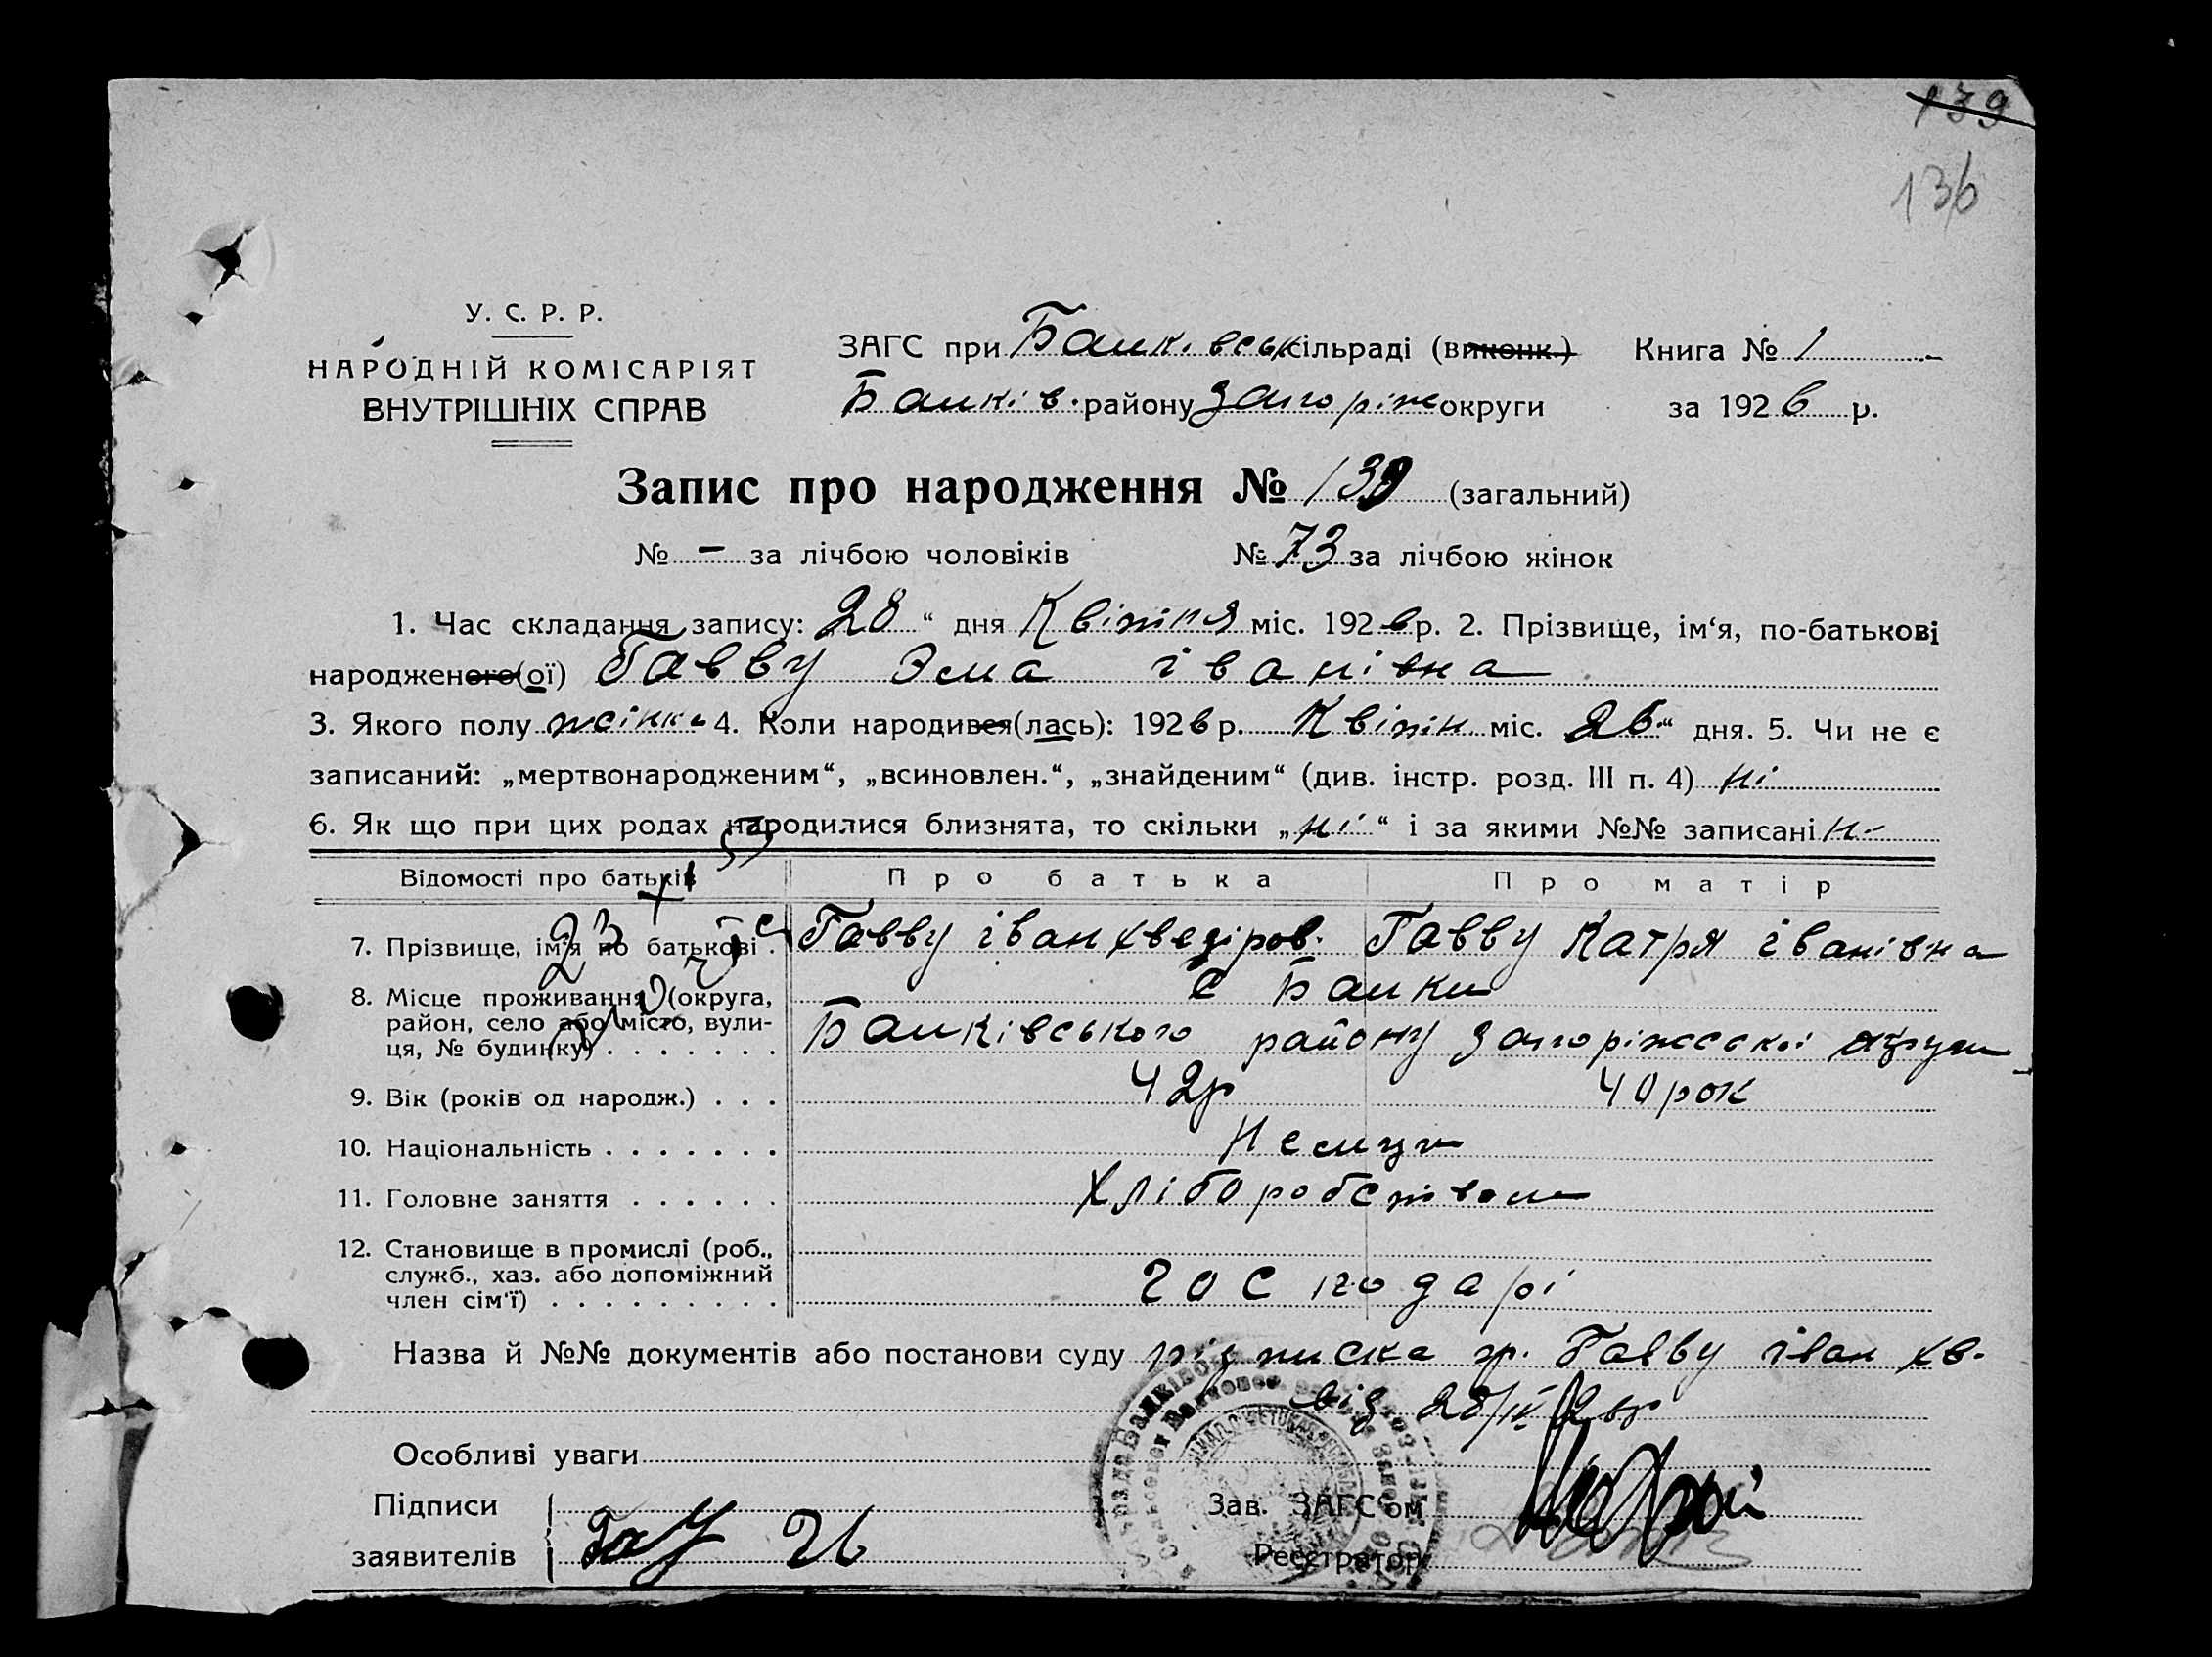 139
136
У. С. Р. Р.
НАРОДНІЙ КОМІСАРІЯТ
ВНУТРІШНІХ СПРАВ
ЗАГС при Балк. вськ сільраді (виконк.) Книга № 1
Балків. району Запоріж округи за 1926 р.
Запис про народження № 139 (загальний)
№ - за лічбою чоловіків № 73 за лічбою жінок
1. Час складання запису: 28 “ дня Квітня міс. 1926 р. 2. Прізвище, ім‘я, по-батькові
народженого(ої) Гавву Эма іванівна
3. Якого полу жінк. 4. Коли народився(лась): 1926 р. Квітн. міс. 26 “ дня. 5. Чи не є
записаний: „мертвонародженим“, „всиновлен.“, „знайденим“ (див. інстр. розд. III п. 4) ні
6. Як що при цих родах народилися близнята, то скільки „ні“ і за якими №№ записані н-
Відомості про батьків Про батька Про матір
7. Прізвище, ім‘я по батькові . Гавву іван хведіров. Гавву Катря іванівна
8. Місце проживання (округа, с Балки
район, село або місто, вули-
ця, № будинку) . . . . . . . Балківського району Запоріжської округи
9. Вік (років од народж.) . . . 42р 40 рок
10. Національність . . . . . . . Немци
11. Головне заняття . . . . . . Хліборобством
12. Становище в промислі (роб.,
служб., хаз. або допоміжний
член сім‘ї) . . . . . . . . . господарі
Назва й №№ документів або постанови суду підписка гр. Гавву іван хв.
від 28/IV 26р
Особливі уваги
Підписи Зав. ЗАГС‘ом
заявителів 26 Реєстратор